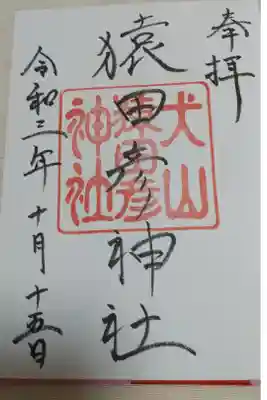 奉拝
猿田彦神社
犬山
猿田彦
神社
令和三年十月十五日